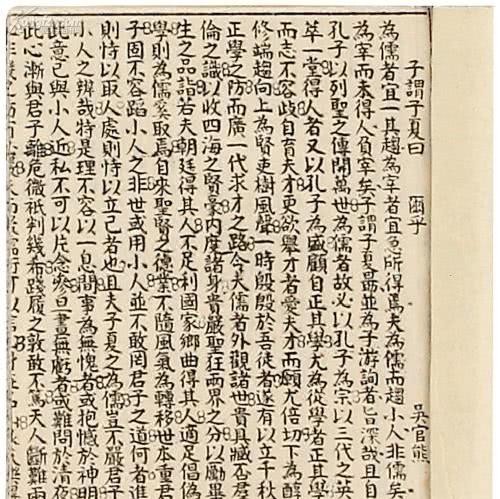 子謂子夏曰　爾乎
吳官熊
為儒者宜一其趨為宰者宜急所得焉夫為儒而趨小人非儒矣
為宰而未得人負宰矣子謂子夏曷並為子游詢者旨深哉且自
孔子以列聖之傳開萬世為儒者故必以孔子為宗以三代之英
萃一堂得人者又以孔子為盛顧自正其學尤為從學者正其學
而志不容歧自育夫才更欲舉才者愛夫才而願尤倍切下為醇
修端趨向上為賢吏樹風聲一時殷殷於吾徒者遂有以立千秋
正學之防而廣一代求才之路今夫儒者外觀諸世貴具臧否
倫之識以收四海之賢豪內度諸身貴嚴聖狂兩界之分以勵畢
生之品詣若夫朝廷得其人不足利國家鄉曲得其人適足倡偽
學則為儒奚取焉自來聖賢之德業不隨風氣為轉移世本重君
子固不容蹈小人之非世或用小人並不敢罔君子之道何者進
則恃以取人處則恃以立己者也且夫子夏之為儒豈不嚴君子
小人之辨哉特是理不容以一息間事為無愧者或抱憾於神明
此意已與小人近私不可以片念參旦晝無虧者或難問於清夜
此心漸與君子離危微祇判幾希踐履之敦敢不篤天人斷難兩